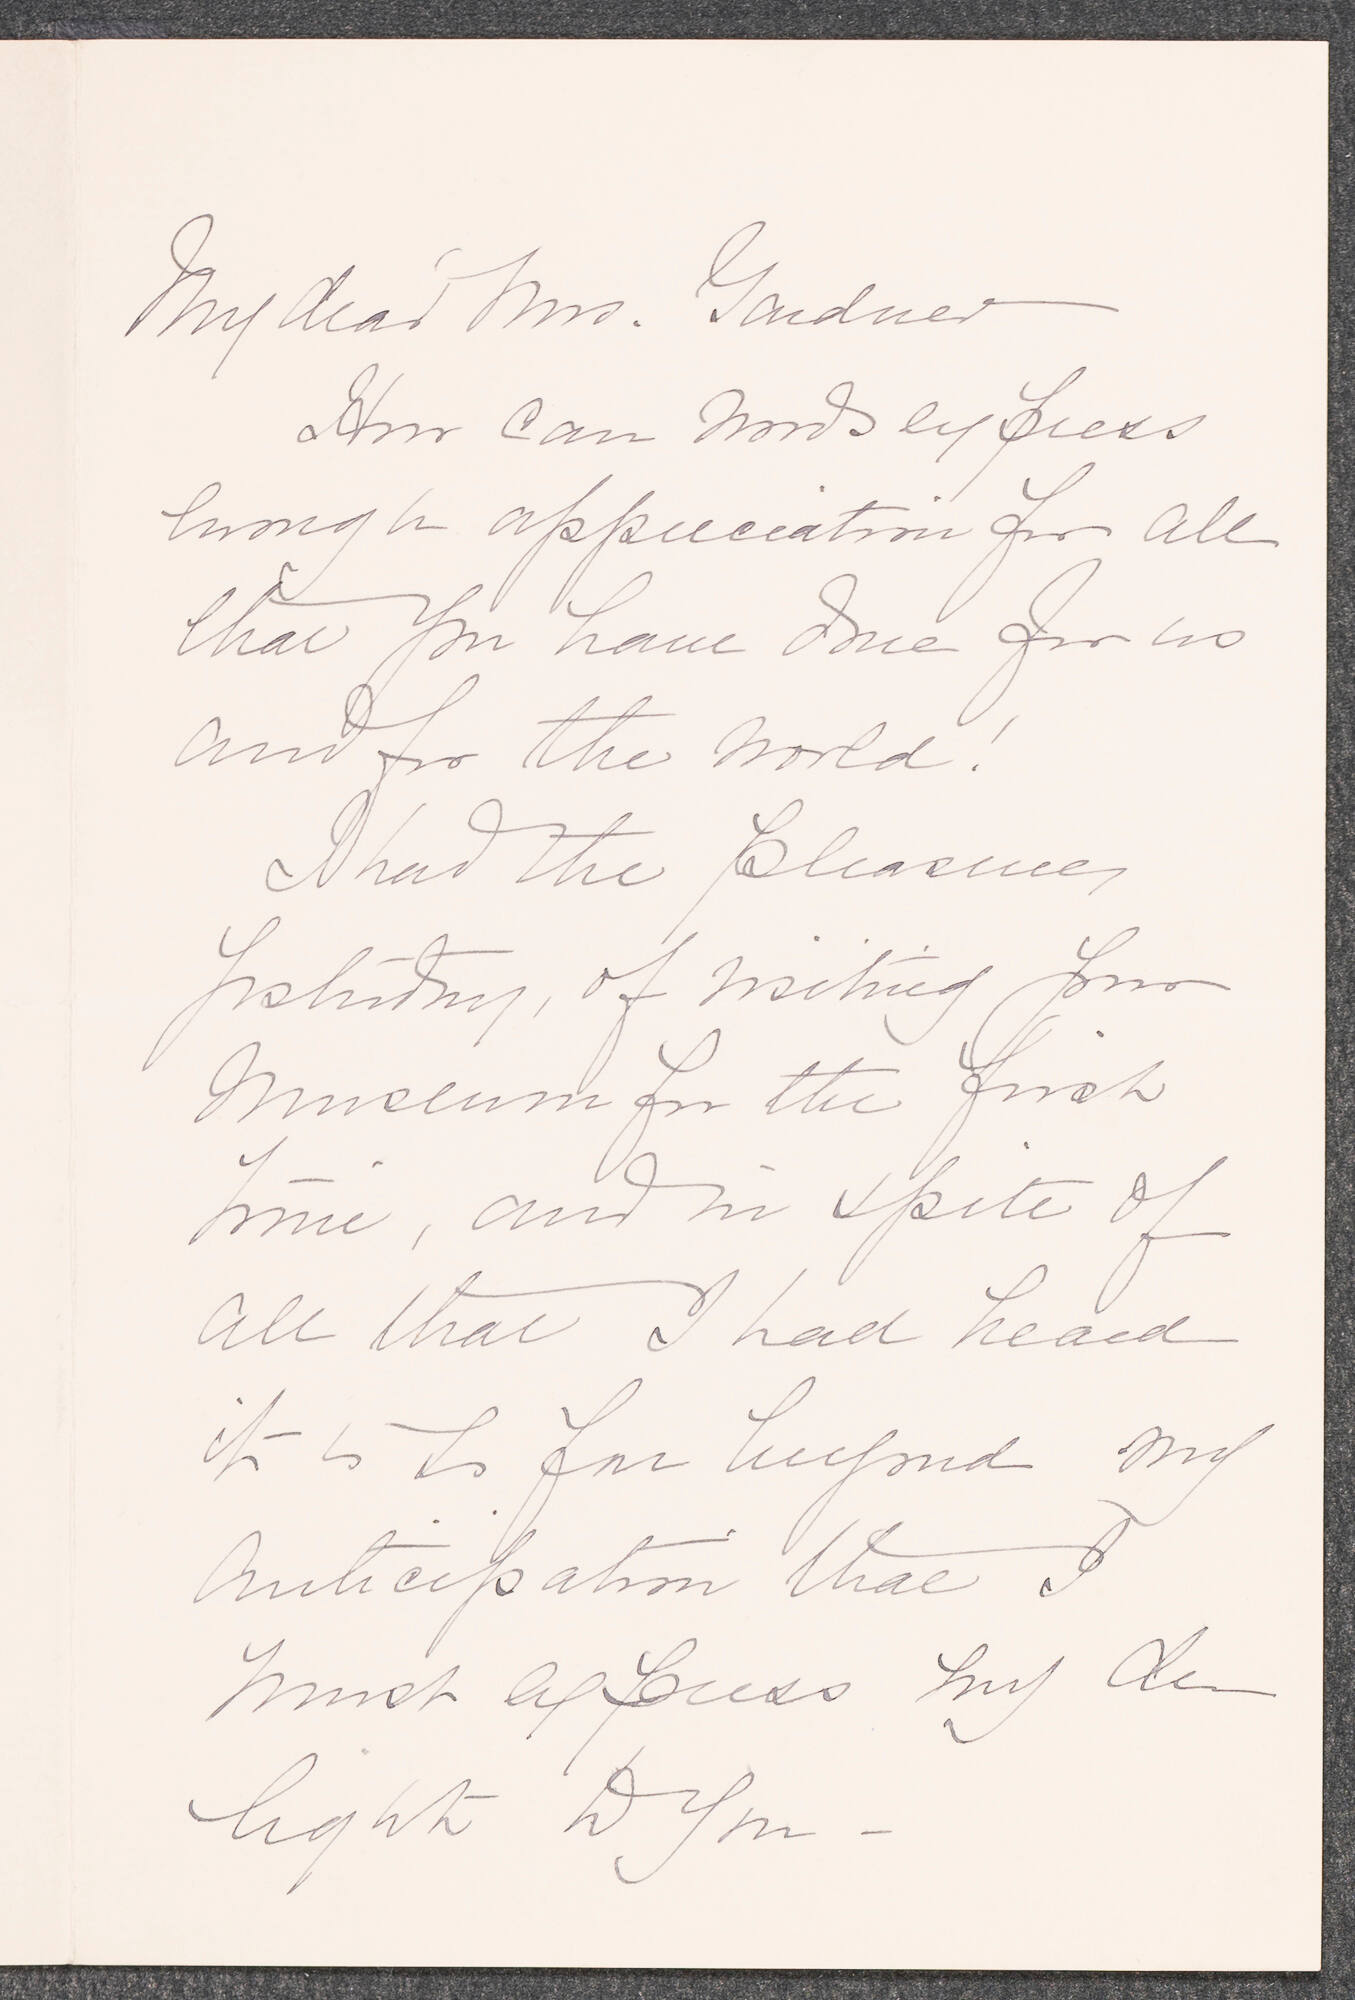 My dear Mrs. Gardner
How can words express
enough appreciation for all
that you have done for us
and for the world!
I had the pleasure,
yesterday, of visiting your
Museum for the first
time, and in spite of
all that I had heard
it is so far beyond my
anticipation that I
must express my de-
light to you -